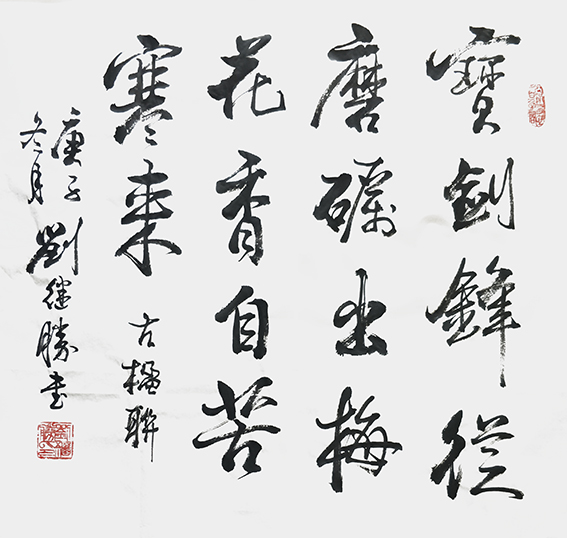 寶劍鋒從
磨礪出梅
花香自苦
寒来
古楹聯
庚子
冬月
劉继勝书